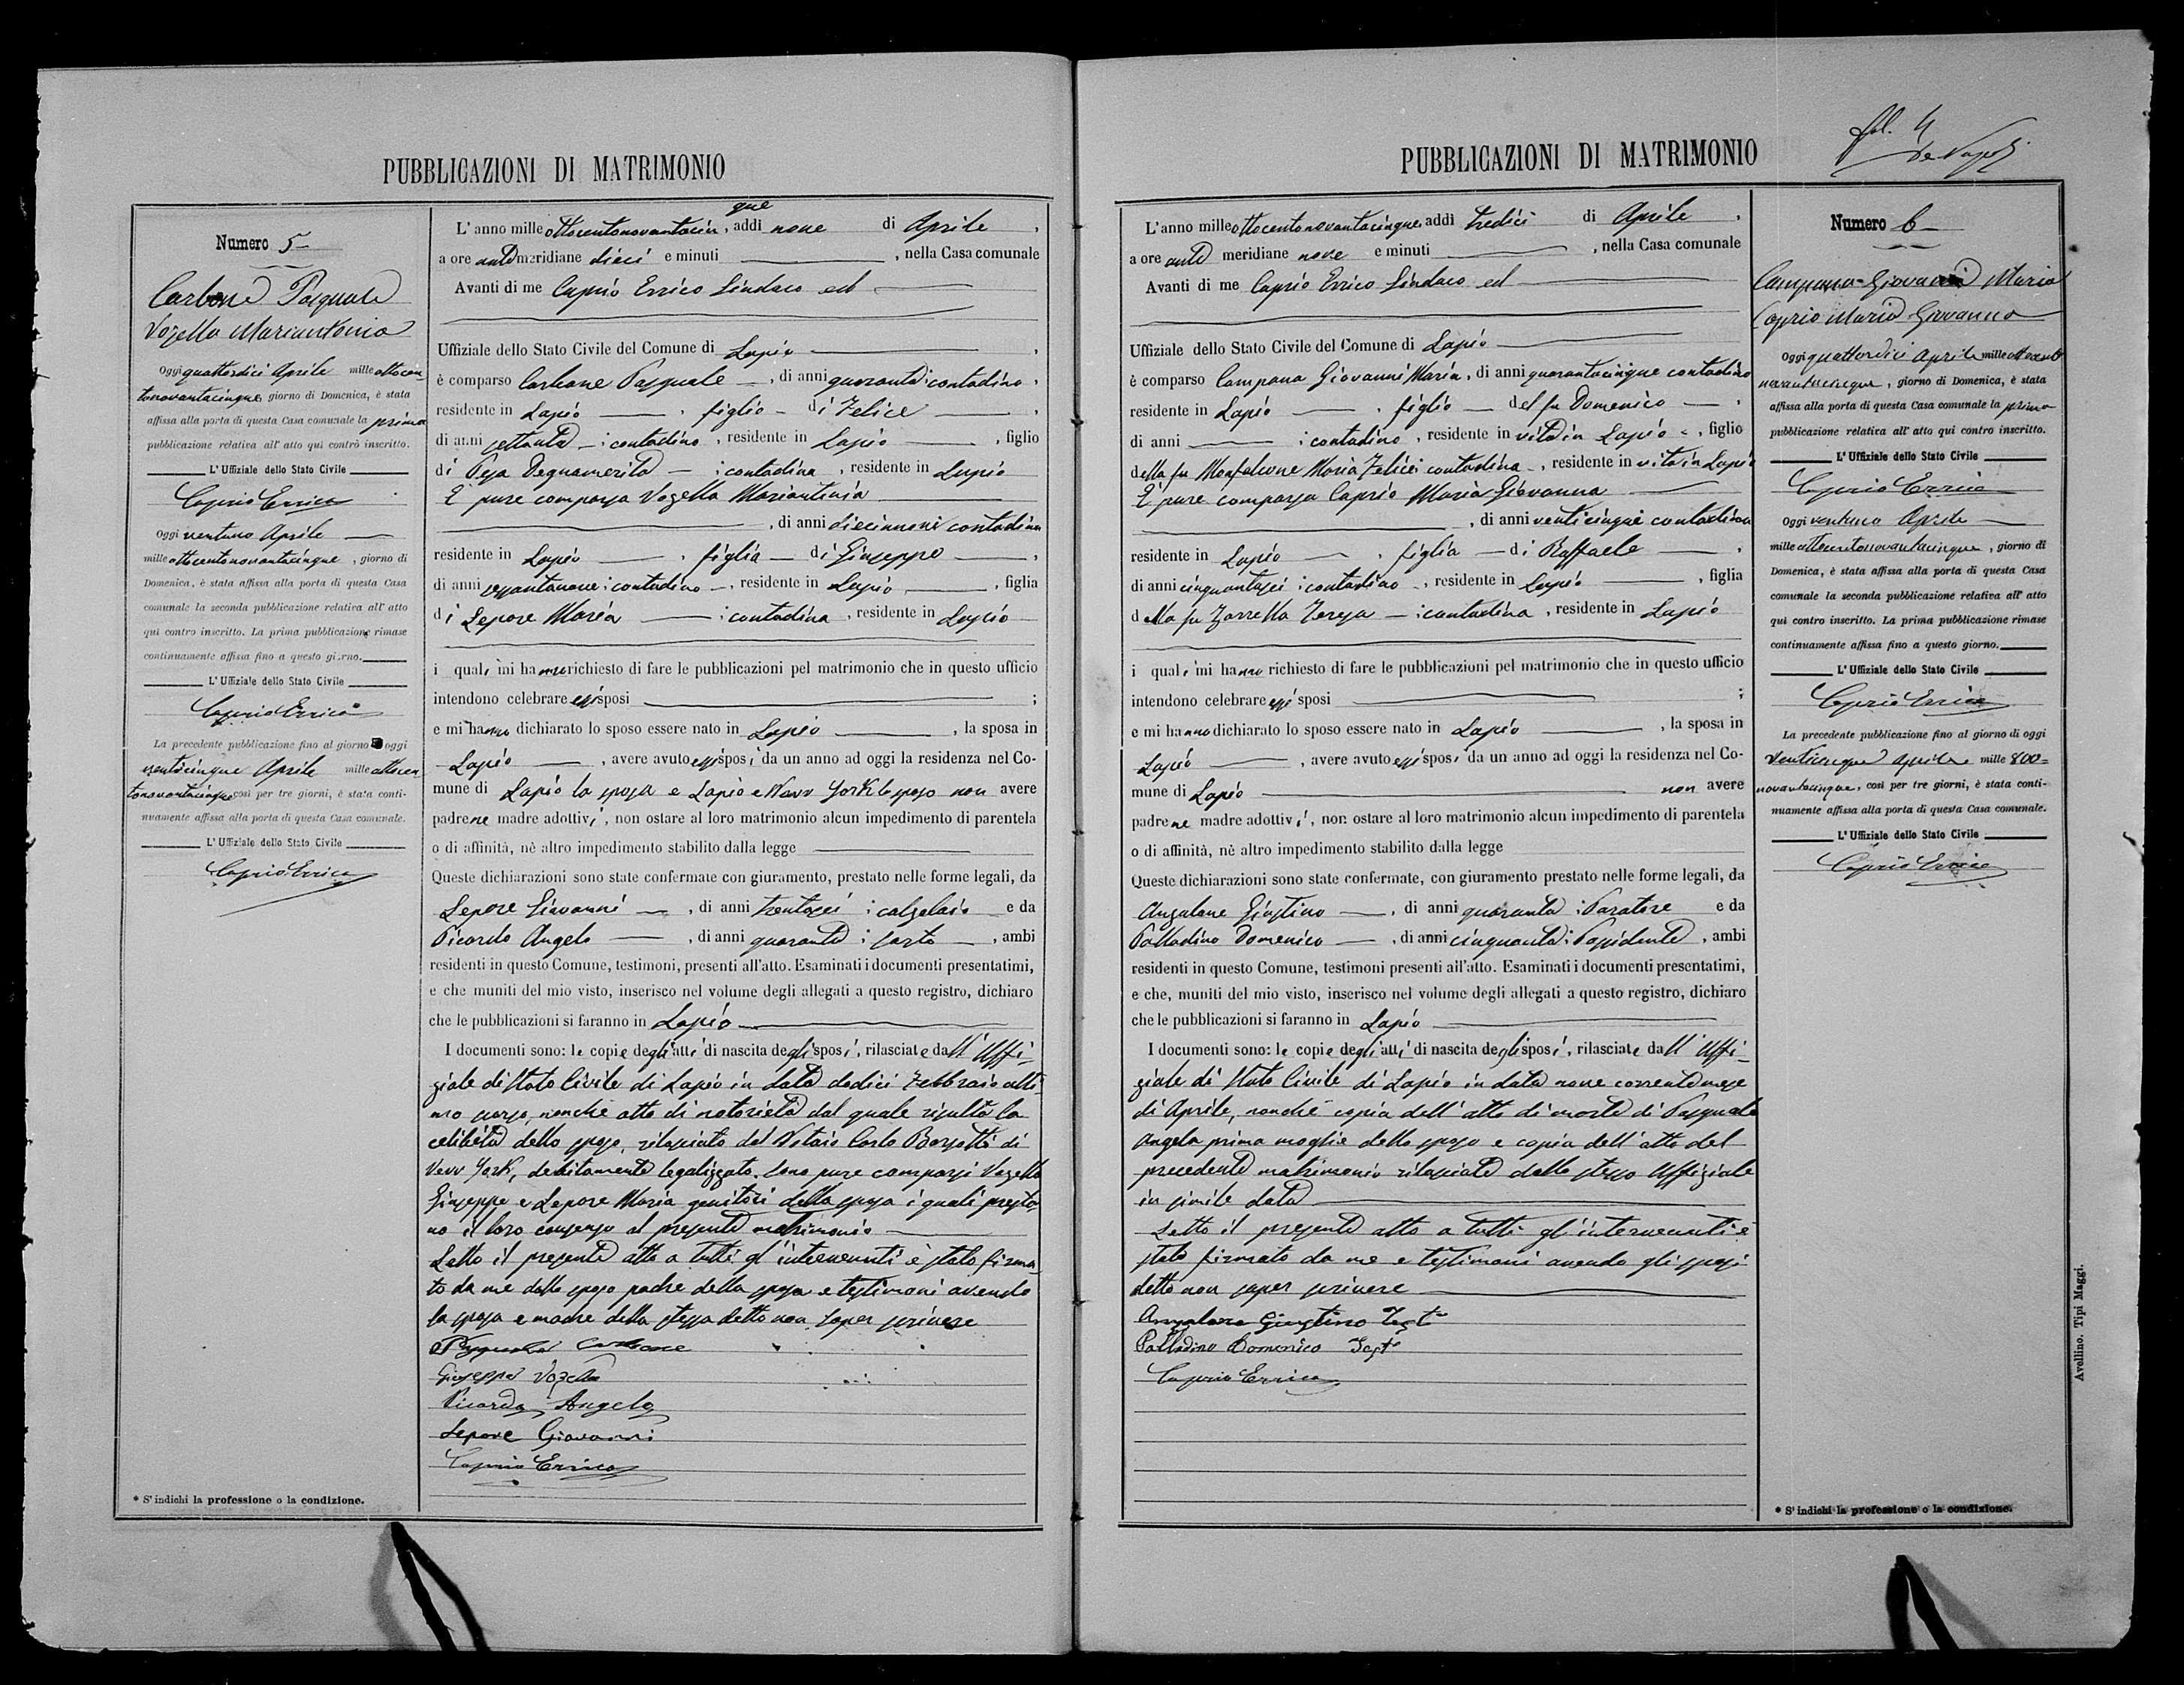 PUBBLICAZIONI DI MATRIMONIO
Numero 5
Carbone Pasquale
Vozella Mariantonia
Oggi quattordici Aprile mille ottocen-
tonovantacinque, giorno di Domenica, è stata
affissa alla porta di questa Casa comunale la prima
pubblicazione relativa all' atto quì contro inscritto.
L' Uffiziale dello Stato Civile
Caprio Errico
Oggi ventuno Aprile
mille ottocentonovantacinque, giorno di
Domenica, è stata affissa alla porta di questa Casa
comunale la seconda pubblicazione relativa all' atto
qui contro inscritto. La prima pubblicazione rimase
continuamente affissa fino a questo giorno.
L' Uffiziale dello Stato Civile
Caprio Errico
La precedente pubblicazione fino al giorno di oggi
venticinque Aprile mille ottocen
tonovantacinque così per tre giorni, è stata conti-
nuamente affissa alla porta di questa Casa comunale.
L' Uffiziale dello Stato Civile
Caprio Errico
* S' indichi la professione o la condizione.
que
L' anno mille ottocentonovantacin, addì nove di Aprile,
a ore antimeridiane dieci e minuti , nella Casa comunale
Avanti di me Caprio Errico Sindaco ed
Uffiziale dello Stato Civile del Comune di Lapio,
è comparso Carbone Pasquale, di anni quaranta contadino,
residente in Lapio, figlio di Felice,
di anni settanta contadino, residente in Lapio, figlio
di Pesa Degnamerita contadina, residente in Lapio
E' pure comparsa Vozella Mariantonia
, di anni diecinnove contadina
residente in Lapio, figlia di Giuseppe,
di anni sessantanove contadino, residente in Lapio, figlia
di Lepore Maria contadina, residente in Lapio
i quali mi hanno richiesto di fare le pubblicazioni pel matrimonio che in questo ufficio
intendono celebrare essi sposi ;
e mi hanno dichiarato lo sposo essere nato in Lapio, la sposa in
Lapio, avere avuto essi sposi da un anno ad oggi la residenza nel Co-
mune di Lapio la sposa e Lapio e Navv York lo sposo non avere
padre ne madre adottivi, non ostare al loro matrimonio alcun impedimento di parentela
o di affinità, nè altro impedimento stabilito dalla legge
Queste dichiarazioni sono state confermate con giuramento, prestato nelle forme legali, da
Lepore Giovanni, di anni trentasei calzolaio e da
Picardo Angelo, di anni quaranta sarto, ambi
residenti in questo Comune, testimoni, presenti all'atto. Esaminati i documenti presentatimi,
e che muniti del mio visto, inserisco nel volume degli allegati a questo registro, dichiaro
che le pubblicazioni si faranno in Lapio
I documenti sono: le copie degli atti di nascita degli sposi, rilasciate dall' Uffi-
ziale di Stato Civile di Lapio in data dodici Febbraio ulti-
mo scorso, nonchè atto di notorietà dal quale risulta la
celibità dello sposo, rilasciato dal Notaio Carlo Barsotti di
Navv York, debitamente legalizzato. Sono pure comparsi Vozella
Giuseppe e Lepore Maria genitori della sposa i quali presta-
no il loro consenso al presente matrimonio
Letto il presente atto a tutti gl' intervenuti è stato firma-
to da me dallo sposo padre della sposa e testimoni avendo
la sposa e madre della stessa detto non saper scrivere
Pasquale Carbone
Giuseppe Vozella
Picardo Angelo
Lepore Giovanni
Caprio Errico
PUBBLICAZIONI DI MATRIMONIO
fol. 4
L' anno mille ottocentonovantacinque, addì tredici di Aprile,
a ore anti meridiane nove e minuti , nella Casa comunale
Avanti di me Caprio Errico Sindaco ed
Uffiziale dello Stato Civile del Comune di Lapio
è comparso Campana Giovanni Maria, di anni quarantacinque contadino
residente in Lapio, figlio del fu Domenico,
di anni contadino, residente in vita in Lapio, figlio
della fu Monfalcone Maria Felice contadina, residente in vita in Lapio
E' pure comparsa Caprio Maria Giovanna
, di anni venticinque contadina
residente in Lapio, figlia di Raffaele,
di anni cinquantasei contadino, residente in Lapio, figlia
della fu Zarrella Teresa contadina, residente in Lapio
i quali mi hanno richiesto di fare le pubblicazioni pel matrimonio che in questo ufficio
intendono celebrare essi sposi ;
e mi hanno dichiarato lo sposo essere nato in Lapio, la sposa in
Lapio, avere avuto essi sposi da un anno ad oggi la residenza nel Co-
mune di Lapio non avere
padre ne madre adottivi, non ostare al loro matrimonio alcun impedimento di parentela
o di affinità, nè altro impedimento stabilito dalla legge
Queste dichiarazioni sono state confermate, con giuramento prestato nelle forme legali, da
Angalone Giustino, di anni quaranta Saratore e da
Palladino Domenico, di anni cinquanta Possidente, ambi
residenti in questo Comune, testimoni presenti all'atto. Esaminati i documenti presentatimi,
e che, muniti del mio visto, inserisco nel volume degli allegati a questo registro, dichiaro
che le pubblicazioni si faranno in Lapio
I documenti sono: le copie degli atti di nascita degli sposi, rilasciate dall' Uffi-
ziale di Stato Civile di Lapio in data nove corrente mese
di Aprile, nonchè copia dell' atto di morte di Pasquale
Angela prima moglie dello sposo e copia dell' atto del
precedente matrimonio rilasciate dallo stesso Uffiziale
in simile data
Letto il presente atto a tutti gl' intervenuti è
stato firmato da me e testimoni avendo gli sposi
detto non saper scrivere
Angalone Giustino Test.
Palladino Domenico Test.
Caprio Errico
Numero 6
Campana Giovanni Maria
Caprio Maria Giovanna
Oggi quattordici Aprile mille ottocento
novantacinque, giorno di Domenica, è stata
affissa alla porta di questa Casa comunale la prima
pubblicazione relativa all' atto quì contro inscritto.
L' Uffiziale dello Stato Civile
Caprio Errico
Oggi ventuno Aprile
mille ottocentonovantacinque, giorno di
Domenica, è stata affissa alla porta di questa Casa
comunale la seconda pubblicazione relativa all' atto
quì contro inscritto. La prima pubblicazione rimase
continuamente affissa fino a questo giorno.
L' Uffiziale dello Stato Civile
Caprio Errico
La precedente pubblicazione fino al giorno di oggi
venticinque Aprile mille 800=
novantacinque, così per tre giorni, è stata conti-
nuamente affissa alla porta di questa Casa comunale.
L' Uffiziale dello Stato Civile
Caprio Errico
* S' indichi la professione o la condizione.
Avellino. Tipi Maggi.